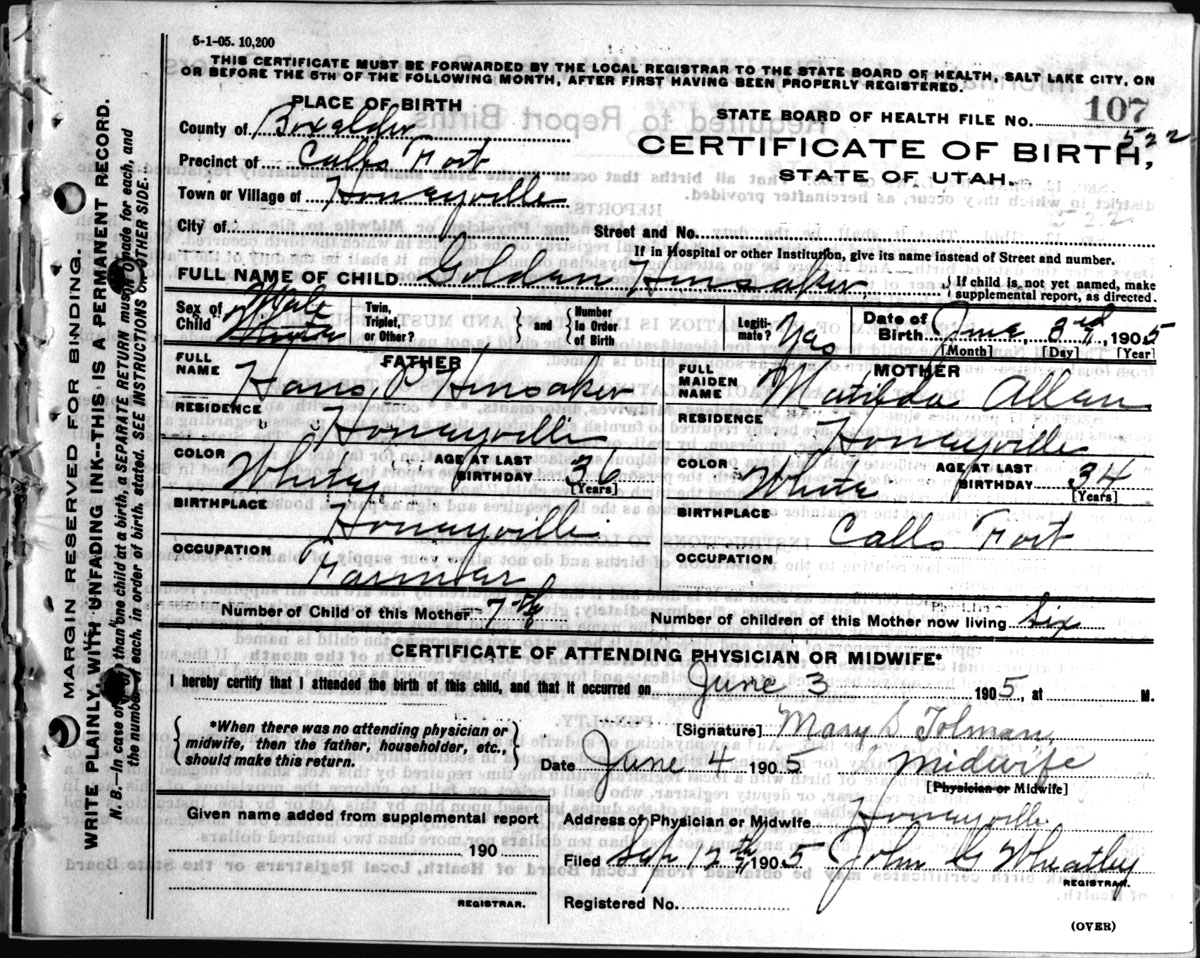 5-1-05. 10,200
THIS CERTIFICATE MUST BE FORWARDED BY THE LOCAL REGISTRAR TO THE STATE BOARD OF HEALTH, SALT LAKE CITY, ON
OR BEFORE THE 5TH OF THE FOLLOWING MONTH, AFTER FIRST HAVING BEEN PROPERLY REGISTERED.
PLACE OF BIRTH
STATE BOARD OF HEALTH FILE NO. 107
522
County of Boxelder
CERTIFICATE OF BIRTH,
Precinct of Calls Fort
STATE OF UTAH.
Town or Village of Honeyville
522
City of
Street and No.
If in Hospital or other Institution, give its name instead of Street and number.
FULL NAME OF CHILD Golden Hunsaker
If child is not yet named, make
supplemental report, as directed.
Sex of Child Male
Twin, Triplet, or Other? and Number in Order of Birth
Legitimate? Yes
Date of Birth June, 3rd, 1905
[Month] [Day] [Year]
FATHER
FULL NAME Hans P Hunsaker
RESIDENCE Honeyville
COLOR White AGE AT LAST BIRTHDAY 36 [Years]
BIRTHPLACE Honeyville
OCCUPATION Farmer
MOTHER
FULL MAIDEN NAME Matilda Allen
RESIDENCE Honeyville
COLOR White AGE AT LAST BIRTHDAY 34 [Years]
BIRTHPLACE Calls Fort
OCCUPATION
Number of Child of this Mother 7th
Number of children of this Mother now living Six
CERTIFICATE OF ATTENDING PHYSICIAN OR MIDWIFE*
I hereby certify that I attended the birth of this child, and that it occurred on June 3 1905, at M.
*When there was no attending physician or
midwife, then the father, householder, etc.,
should make this return.
[Signature] Mary S Tolman
Date June 4 1905 Midwife
[Physician or Midwife]
Given name added from supplemental report
190
REGISTRAR.
Address of Physician or Midwife Honeyville
Filed Sep 12th 1905 John G Wheatley
REGISTRAR.
Registered No.
(OVER)
MARGIN RESERVED FOR BINDING.
WRITE PLAINLY, WITH UNFADING INK--THIS IS A PERMANENT RECORD.
N. B.--In case of than one child at a birth, a SEPARATE RETURN must be made for each, and
the number of each, in order of birth, stated. SEE INSTRUCTIONS ON OTHER SIDE.